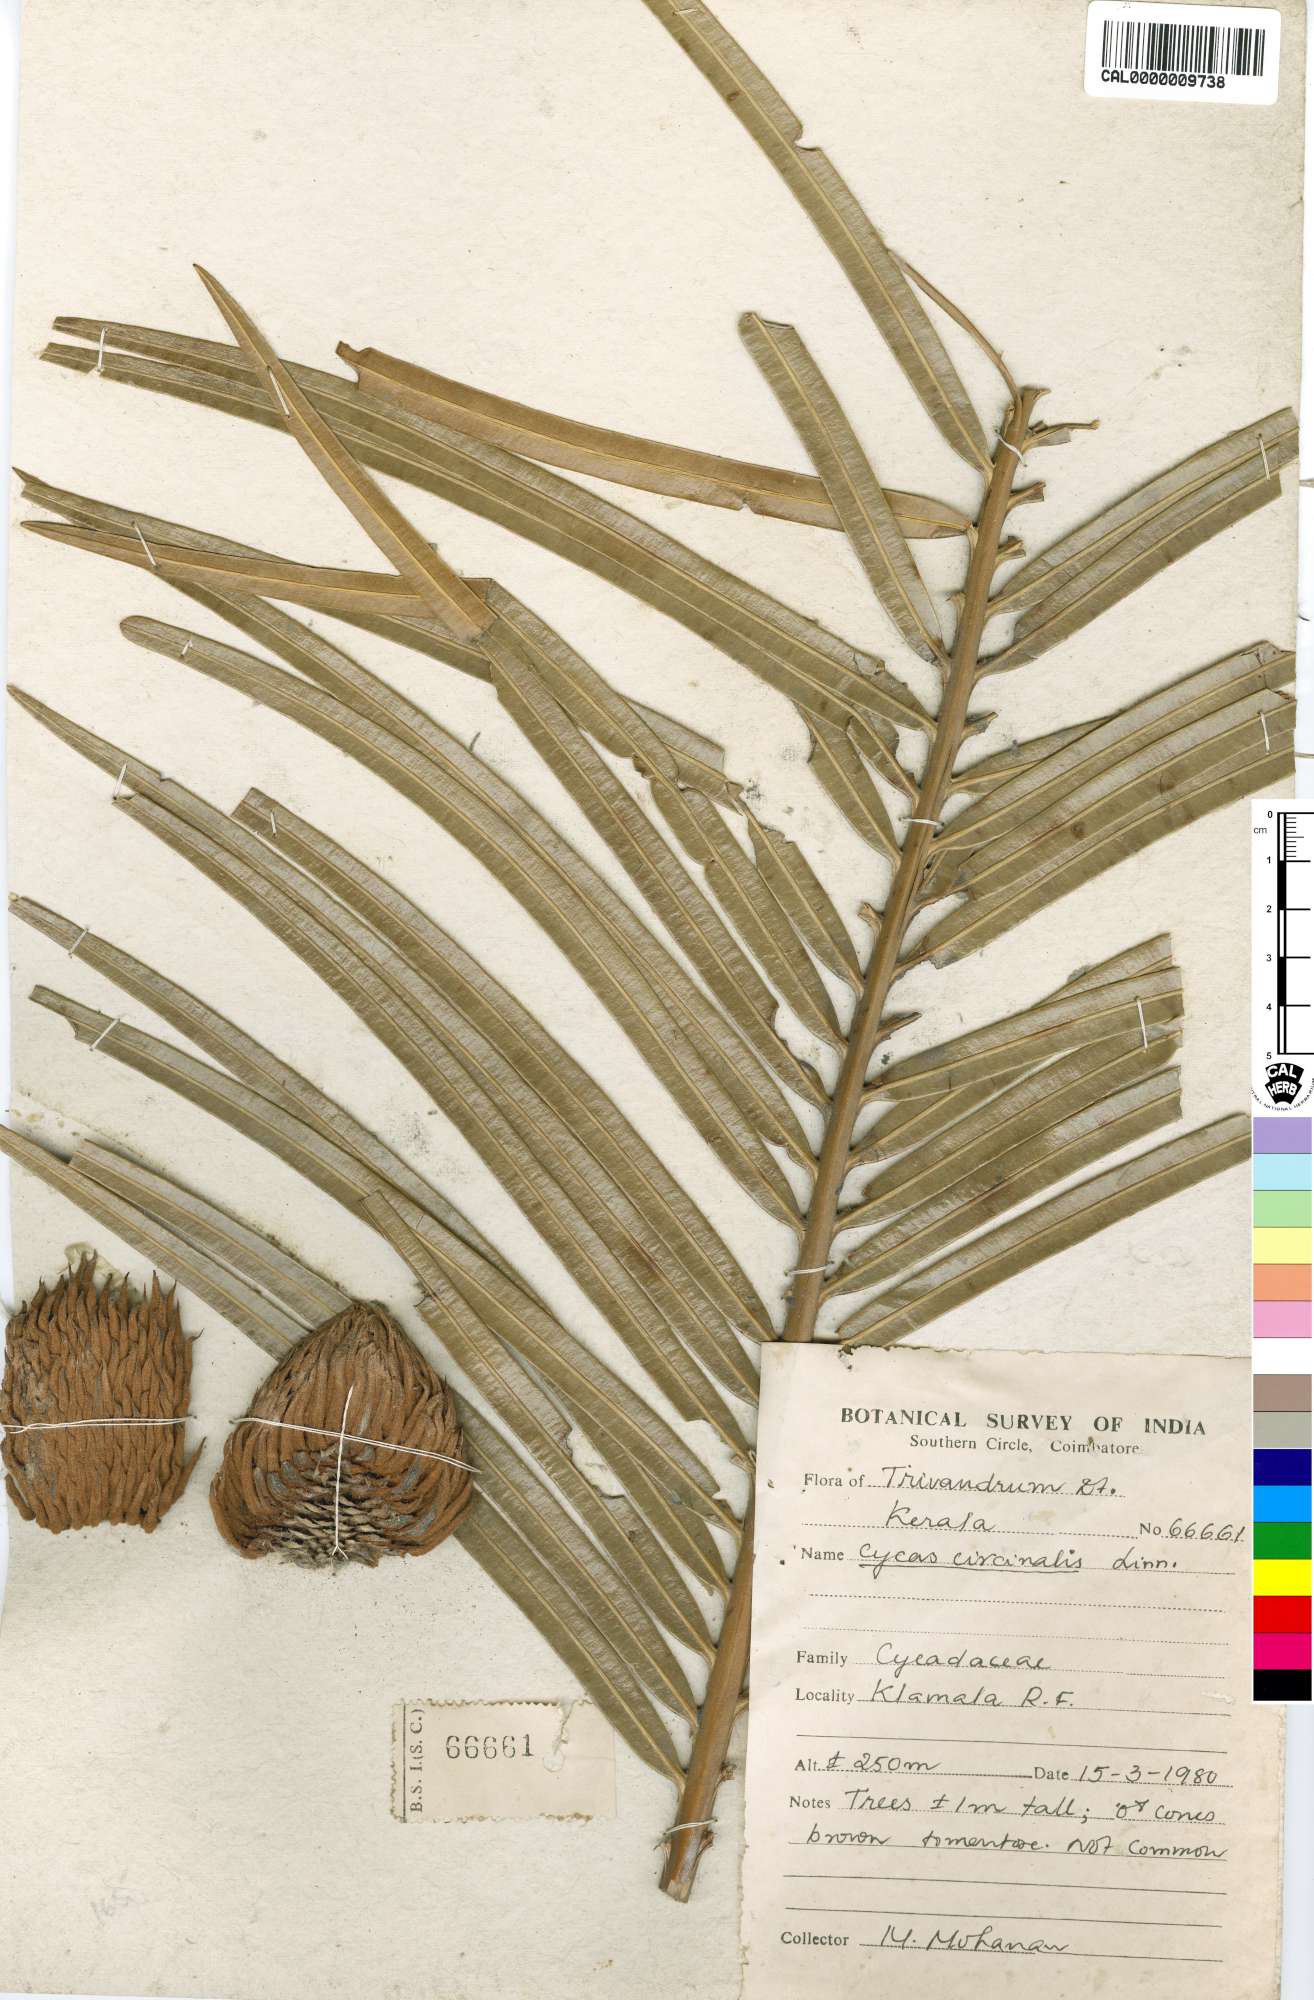 CAL0000009738
0
cm
1
2
3
4
5
CAL
HERB
BOTANICAL SURVEY OF INDIA
Southern Circle, Coimbatore
Flora of Trivandrum Dt.
Kerala No 66661
Name Cycas circinalis Linn.
Family Cycadaceae
Locality Klamala R.F.
Alt. ± 250m Date 15-3-1980
Notes Trees ± 1m tall; ♂ cones
brown tomentose. Not common
Collector M. Mohanan
B. S. I. (S. C.)
66661